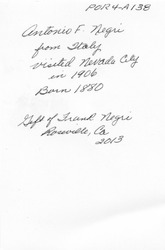 POR 4-A138
Antonio F. Negri
from Italy
visited Nevada City
in 1906
Born 1880
Gift of Frank Negri
Roseville, Ca
2013